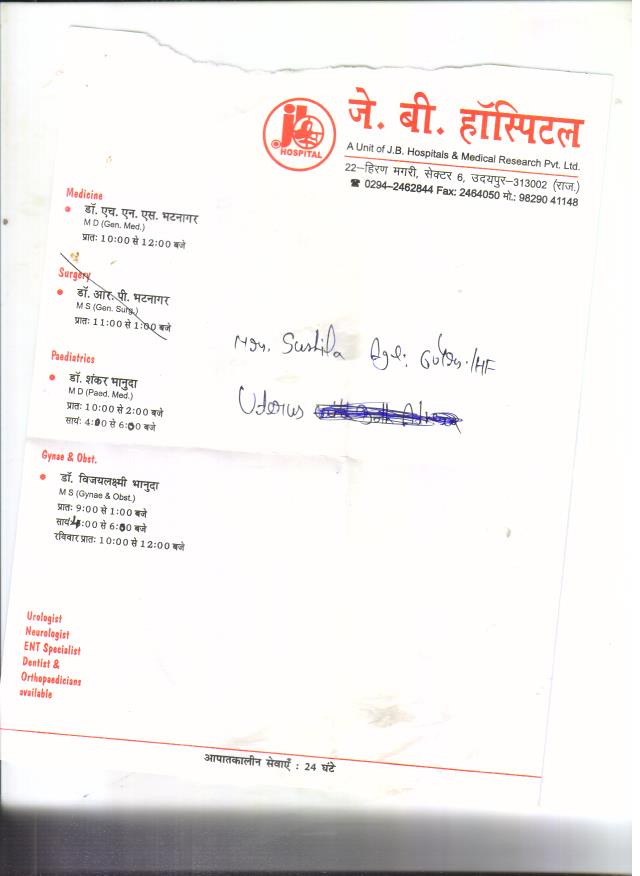 HOSPITAL
जे. बी. हॉस्पिटल
A Unit of J.B. Hospitals & Medical Research Pvt. Ltd.
22–हिरण मगरी, सेक्टर 6, उदयपुर–313002 (राज.)
☎ 0294–2462844 Fax: 2464050 मो.: 98290 41148
Medicine
डॉ. एच. एन. एस. भटनागर
M D (Gen. Med.)
प्रातः 10:00 से 12:00 बजे
Surgery
डॉ. आर. पी. भटनागर
M S (Gen. Surg.)
प्रातः 11:00 से 1:00 बजे
Mrs. Sushila Age: 60 /HF
Paediatrics
डॉ. शंकर भानुदा
M D (Paed. Med.)
प्रातः 10:00 से 2:00 बजे
सायं: 4:00 से 6:00 बजे
Uterus
Gynae & Obst.
डॉ. विजयलक्ष्मी भानुदा
M S (Gynae & Obst.)
प्रातः 9:00 से 1:00 बजे
सायं: 4:00 से 6:00 बजे
रविवार प्रातः 10:00 से 12:00 बजे
Urologist
Neurologist
ENT Specialist
Dentist &
Orthopaedicians
available
आपातकालीन सेवाएँ : 24 घंटे